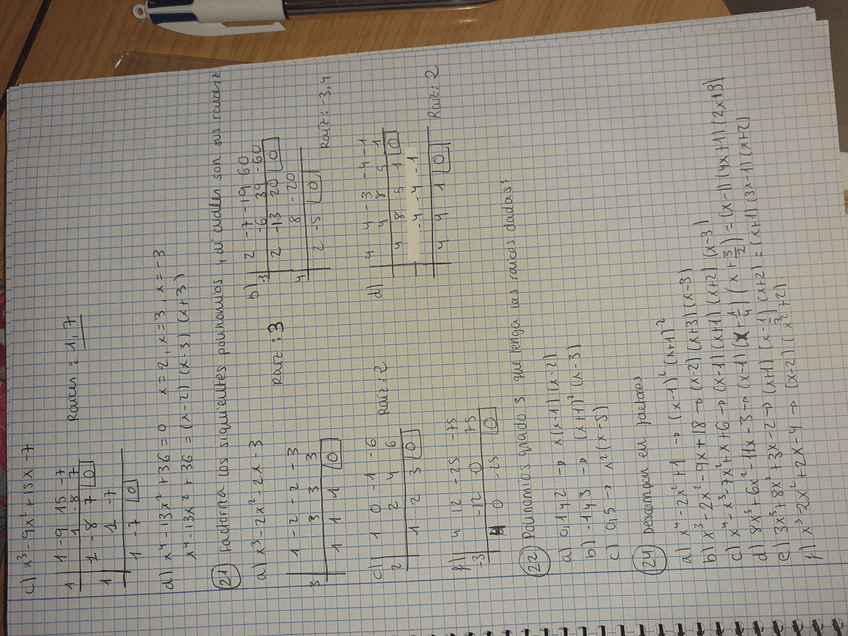 c) x³-9x²+15x-7
1 -9 15 -7
1 1 -8 7
1 -8 7 0
1 1 -7
1 -7 0
Raíces: 1, 7
d) x⁴-13x²+36=0 x=2, x=3, x=-3
x⁴-13x²+36=(x-2)(x-3)(x+3)
21 Factoriza los siguientes polinomios y di cuáles son sus raíces
a) x³-2x²-2x-3
1 -2 -2 -3
3 3 3 3
1 1 1 0
Raíz: 3
b) 2 -7 -19 60
-3 -6 39 -60
2 -13 20 0
4 8 -20
2 -5 0
Raíz: -3, 4
c) 1 0 -1 -6
2 2 4 6
1 2 3 0
Raíz: 2
d) 4 4 -3 -4 -1
4 8 5 1
4 8 5 1 0
-4 -4 -1
4 4 1 0
Raíz: 2
4 12 -25 -75
-3 -12 0 75
4 0 -25 0
22 Polinomios grado 3 que tenga las raíces dadas:
a) 0,1 y 2 → x(x-1)(x-2)
b) -1 y 3 → (x+1)²(x-3)
c) 0,5 → x²(x-5)
24 Descompon en factores
a) x⁴-2x²+1 → (x-1)²(x+1)²
b) x³-2x²-9x+18 → (x-2)(x+3)(x-3)
c) x⁴-x³-7x²+x+6 → (x-1)(x+1)(x+2)(x-3)
d) 8x³+6x²-11x-3 → (x-1)(x+1/4)(x+3/2)=(x-1)(4x+1)(2x+3)
e) 3x³+8x²+3x-2 → (x+1)(x-1/3)(x+2)=(x+1)(3x-1)(x+2)
f) x³-2x²+2x-4 → (x-2)(x²+2).